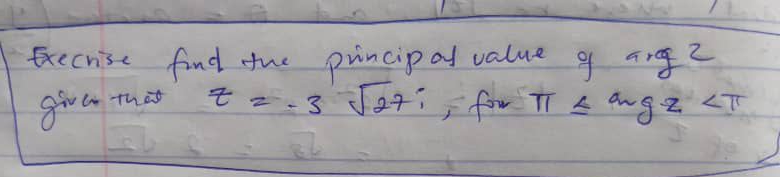 Execrise find the principal value of arg z
given that z = -3 √27i, for π ≤ arg z < π